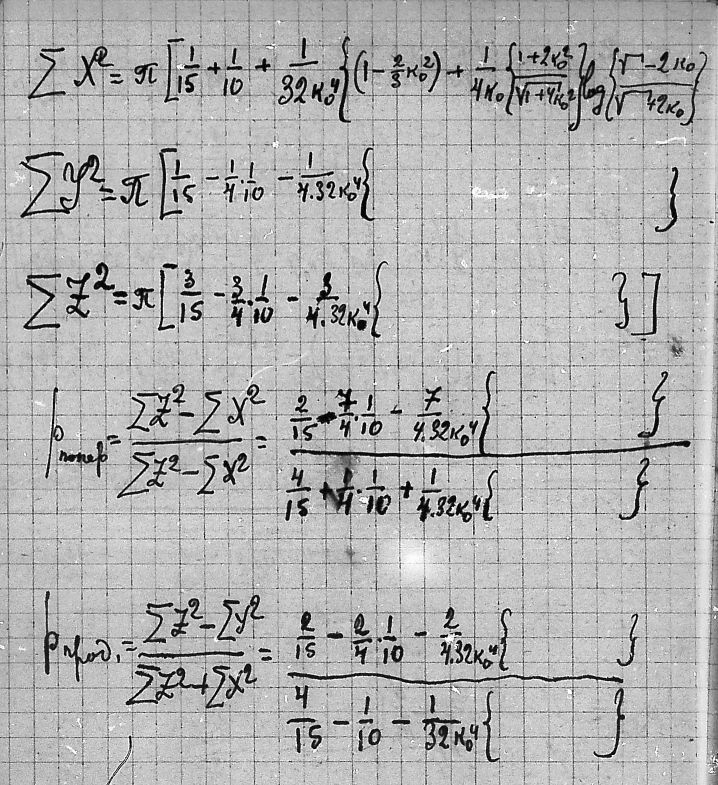 ∑ X² = π [ 1/15 + 1/10 + 1/32κ₀⁴ { (1 - 2/3 κ₀²) + 1/4κ₀ { 1+2κ₀² / √1+4κ₀² } log { √ - 2κ₀ / √ +2κ₀ }
∑ y² = π [ 1/15 - 1/4 · 1/10 - 1/4.32κ₀⁴ { }
∑ Z² = π [ 3/15 - 3/4 · 1/10 - 3/4.32κ₀⁴ { } ]
p попер = ∑Z² - ∑X² / ∑Z² - ∑X² = 2/15 - 7/4 · 1/10 - 7/4.32κ₀⁴ { } / 4/15 + 1/4 · 1/10 + 1/4.32κ₀⁴ { }
p прод. = ∑Z² - ∑y² / ∑Z² + ∑X² = 2/15 - 2/4 · 1/10 - 2/4.32κ₀⁴ { } / 4/15 - 1/10 - 1/32κ₀⁴ { }